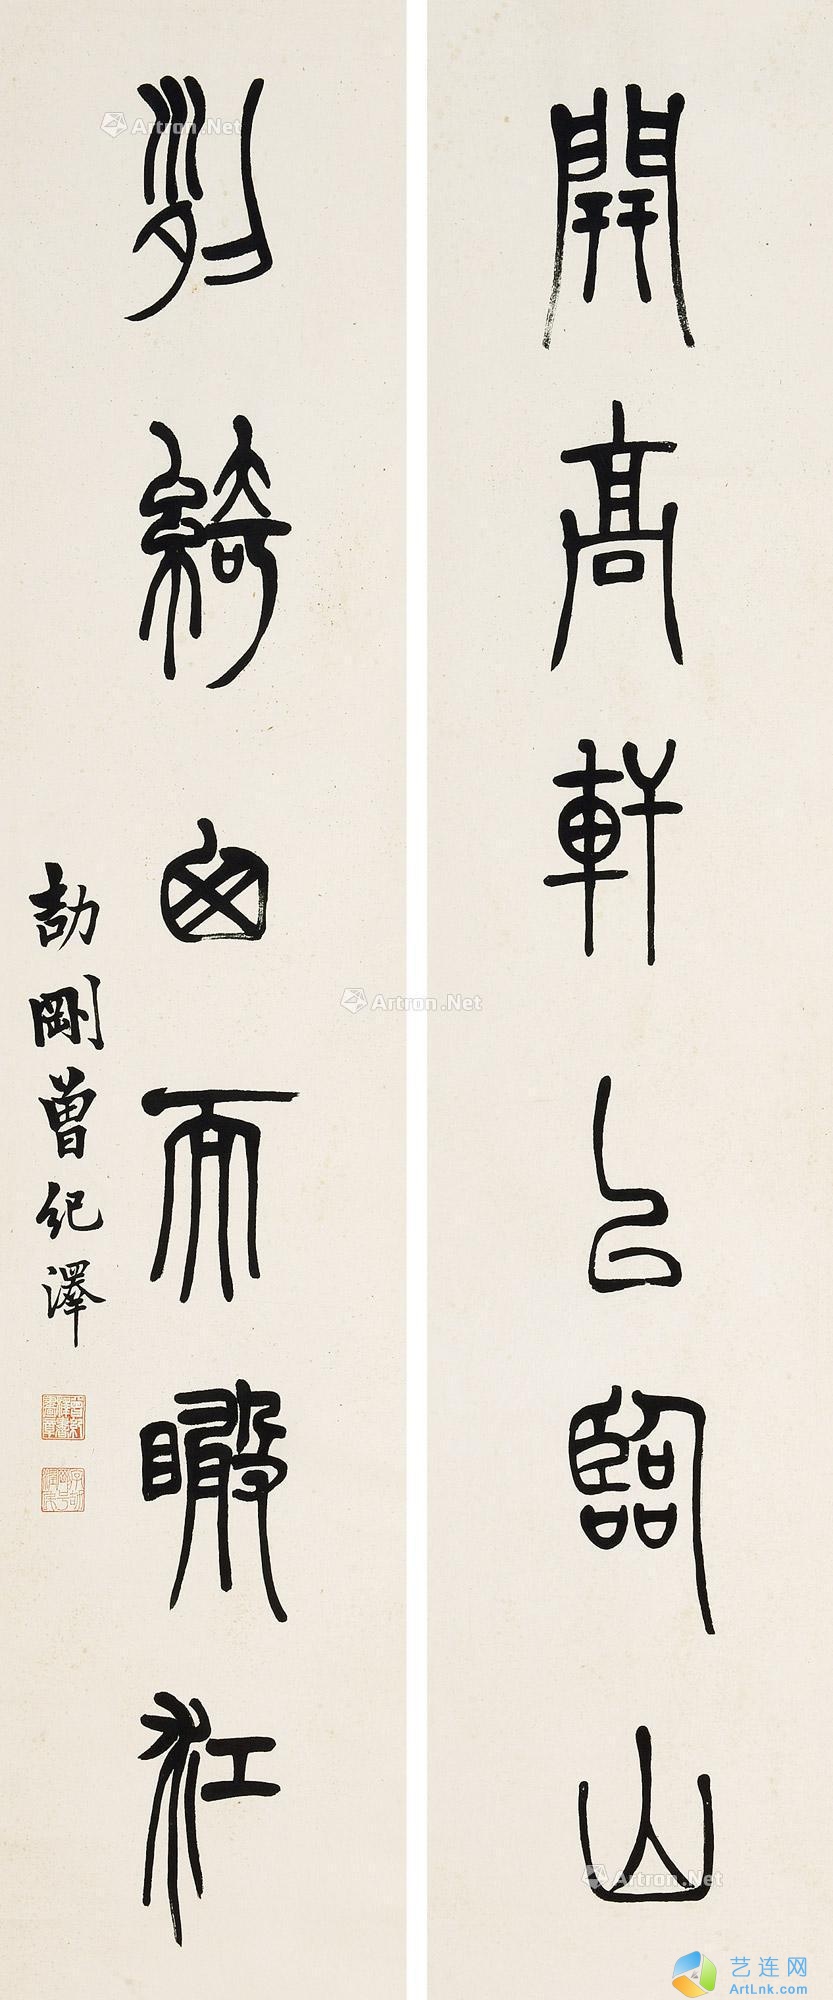 開高軒㠯臨山
列綺囪而瞰江
劼剛曾紀澤
Artron.Net
Artron.Net
Artron.Net
艺连网
ArtLnk.com